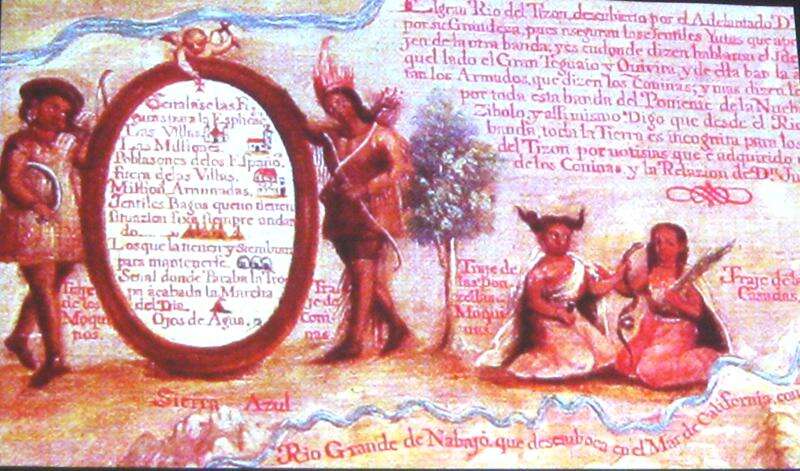 El gran Rio del Tizon, descubierto por el Adelantado D.
por su Grandeza, pues aseguran las Gentiles Yutas que
jen de la otra banda, y es en donde dizen hablavan el
quel lado el Gran Teguaio y Quivira, y de esta ban la
ran los Armudos, que dizen los Coninas, y mas
por toda esta banda del Poniente de la
Zibolo, y assi mismo Digo que desde el Rio
banda, toda la Tierra es incognita para los
del Tizon por notisias que é adquirido
de los Coninas, y la Relazion de D.n Ju
Señalase las Fi
guras para la Esplicaz.
Las Villas.
Las Missiones.
Poblasones de los Españo.
fuera de los Villas.
Mission Arruinadas.
Jentiles Bagos que no tienen
situazion fixa, siempre andan
do.
Los que la tienen y Siembran
para mantenerse.
Señal donde Paraba la Tro
pa acabada la Marcha
del Dia.
Ojos de Agua.
Traje
de los
Moqui
nos.
Tra
je de
Coni
nas
Traje de
las Don
zellas
Moqui
nas.
Traje de las
Casadas.
Sierra Azul
Rio Grande de Nabajó, que desemboca en el Mar de California, con